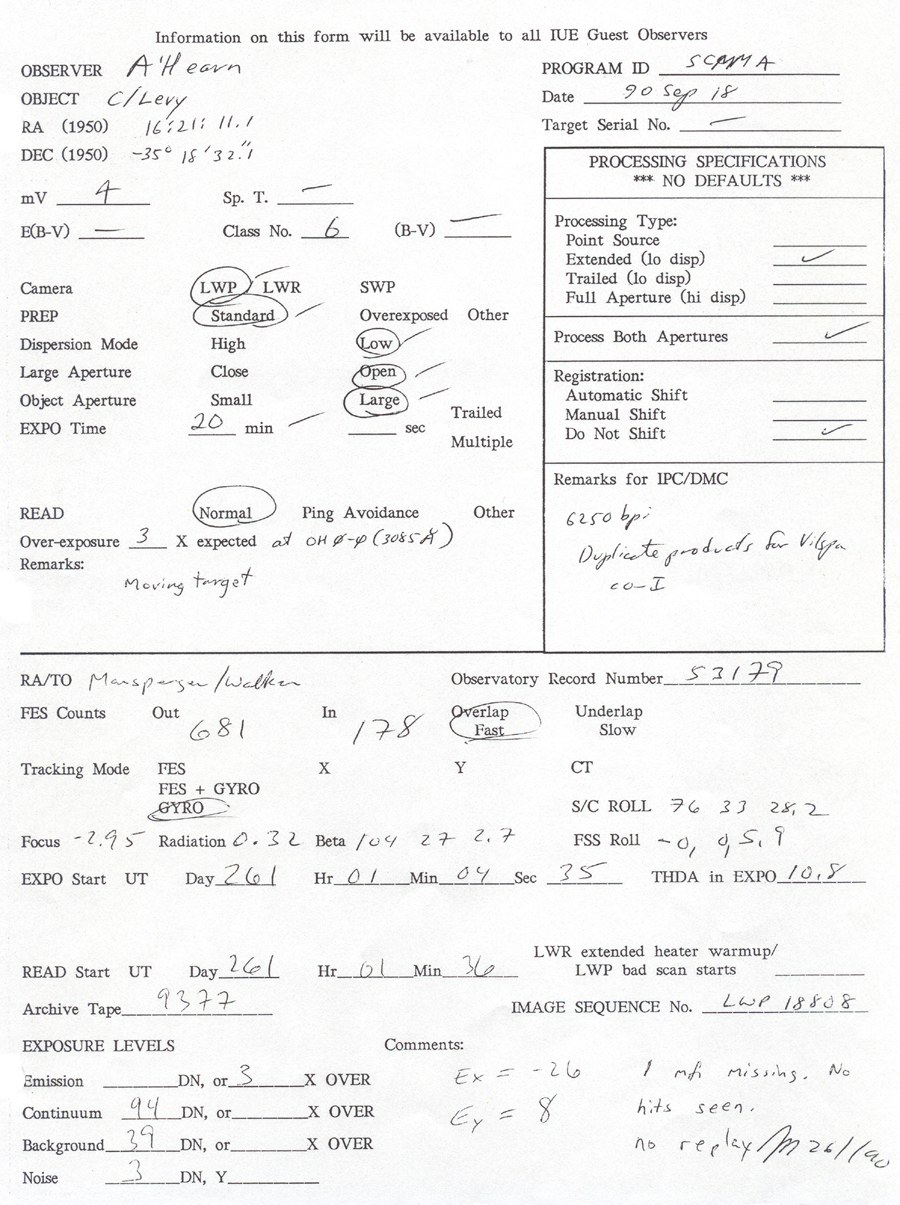 Information on this form will be available to all IUE Guest Observers
OBSERVER A'Hearn
PROGRAM ID SCAMA
OBJECT C/Levy
Date 90 Sep 18
RA (1950) 16:21:11.1
Target Serial No. —
DEC (1950) -35° 18' 32."1
PROCESSING SPECIFICATIONS
*** NO DEFAULTS ***
mV 4 Sp. T. —
E(B-V) — Class No. 6 (B-V) —
Processing Type:
Point Source
Extended (lo disp) ✓
Trailed (lo disp)
Full Aperture (hi disp)
Camera LWP LWR SWP
PREP Standard Overexposed Other
Dispersion Mode High Low
Process Both Apertures ✓
Large Aperture Close Open
Object Aperture Small Large
Trailed
EXPO Time 20 min sec
Multiple
Registration:
Automatic Shift
Manual Shift
Do Not Shift ✓
READ Normal Ping Avoidance Other
Over-exposure 3 X expected at OH 0-0 (3085Å)
Remarks:
Moving target
Remarks for IPC/DMC
6250 bpi
Duplicate products for Vilspa
co-I
RA/TO Mansperger/Walker
Observatory Record Number 53179
FES Counts Out 681 In 178 Overlap Underlap
Fast Slow
Tracking Mode FES X Y CT
FES + GYRO
GYRO S/C ROLL 76 33 28.2
Focus -2.95 Radiation 0.32 Beta 104 27 2.7 FSS Roll -0, 0,5.9
EXPO Start UT Day 261 Hr 01 Min 04 Sec 35 THDA in EXPO 10.8
LWR extended heater warmup/
READ Start UT Day 261 Hr 01 Min 36 LWP bad scan starts
Archive Tape 9377 IMAGE SEQUENCE No. LWP 18808
EXPOSURE LEVELS Comments:
Emission DN, or 3 X OVER Ex = -26 1 mfi missing. No
Continuum 94 DN, or X OVER Ey = 8 hits seen.
Background 39 DN, or X OVER no replay
Noise 3 DN, Y